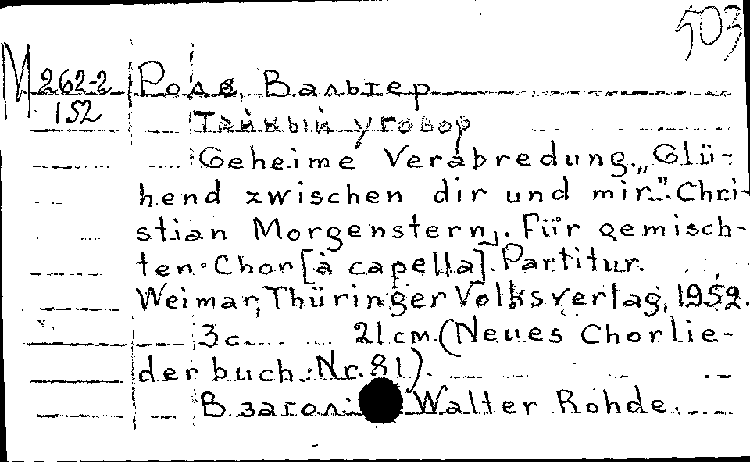 503
М 262-2 Роде, Вальтер
152
Тайный уговор
Geheime Verabredung. „Glü-
hend zwischen dir und mir." Chri-
stian Morgenstern. Für gemisch-
ten Chor [à capella]. Partitur.
Weimar, Thüringer Volksverlag, 1952.
3 с. 21 cm. (Neues Chorlie-
derbuch. Nr. 81).
В загол.: Walter Rohde.